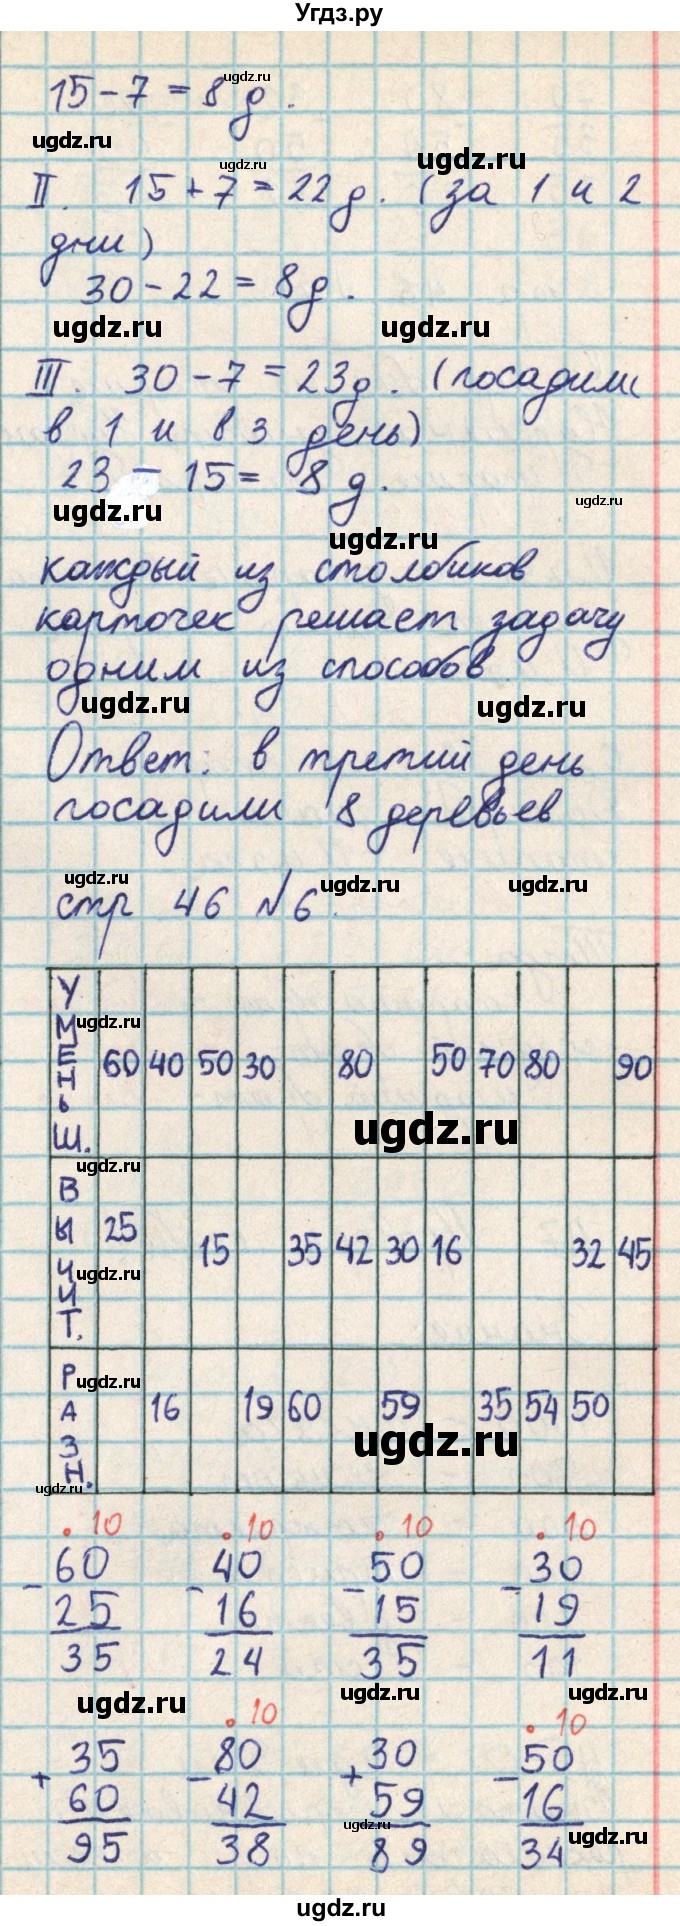 Угдз.ру
15 - 7 = 8 д.
ugdz.ru
ugdz.ru
ugdz.ru
ugdz.ru
II. 15 + 7 = 22 д. (за 1 и 2
дни)
30 - 22 = 8 д.
ugdz.ru
ugdz.ru
III. 30 - 7 = 23 д. (посадили
в 1 и в 3 день)
23 - 15 = 8 д.
ugdz.ru
ugdz.ru
ugdz.ru
каждый из столбиков
карточек решает задачу
одним из способов.
ugdz.ru
ugdz.ru
Ответ: в третий день
посадили 8 деревьев
ugdz.ru
ugdz.ru
ugdz.ru
стр 46 №6.
УМЕНЬШ. 60 40 50 30 80 50 70 80 90
ugdz.ru
ugdz.ru
ugdz.ru
ВЫЧИТ. 25 15 35 42 30 16 32 45
ugdz.ru
РАЗН. 16 19 60 59 35 54 50
ugdz.ru
ugdz.ru
ugdz.ru
. 10 . 10 . 10 . 10
- 60 - 40 - 50 - 30
25 16 15 19
35 24 35 11
ugdz.ru
ugdz.ru
ugdz.ru
. 10 . 10
+ 35 - 80 + 30 - 50
60 42 59 16
95 38 89 34
ugdz.ru
ugdz.ru
ugdz.ru